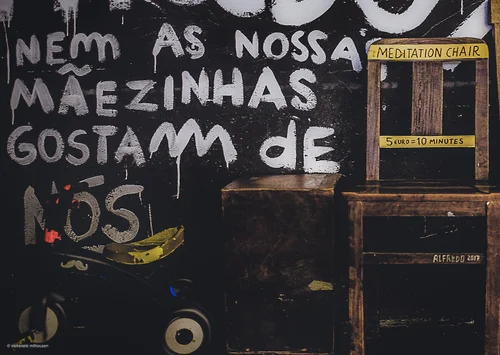 NEM AS NOSSAS
MÃEZINHAS
GOSTAM DE
NÓS
MEDITATION CHAIR
5 EURO = 10 MINUTES
ALFREDO 2017